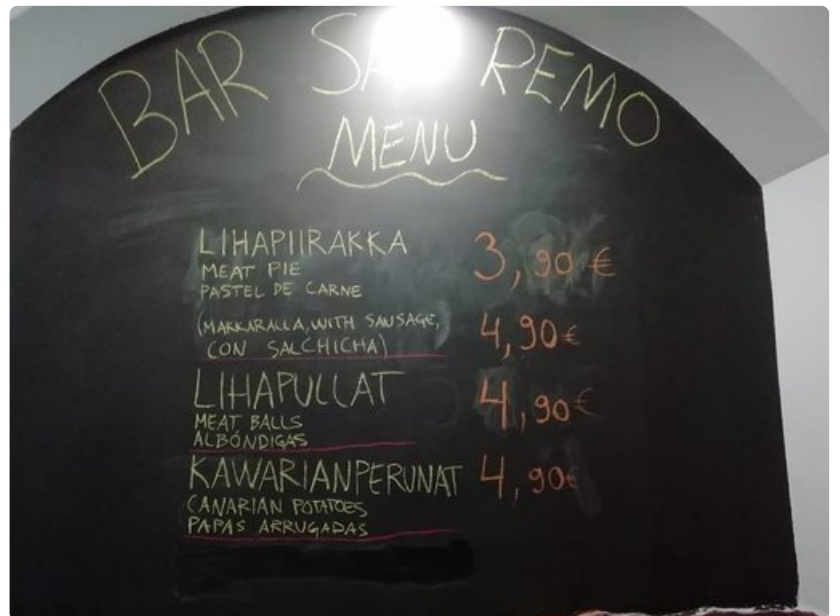 BAR SAN REMO
MENU
LIHAPIIRAKKA 3,90 €
MEAT PIE
PASTEL DE CARNE
(MAKKARALLA, WITH SAUSAGE, 4,90 €
CON SALCHICHA)
LIHAPULLAT 4,90 €
MEAT BALLS
ALBÓNDIGAS
KAWARIANPERUNAT 4,90 €
CANARIAN POTATOES
PAPAS ARRUGADAS